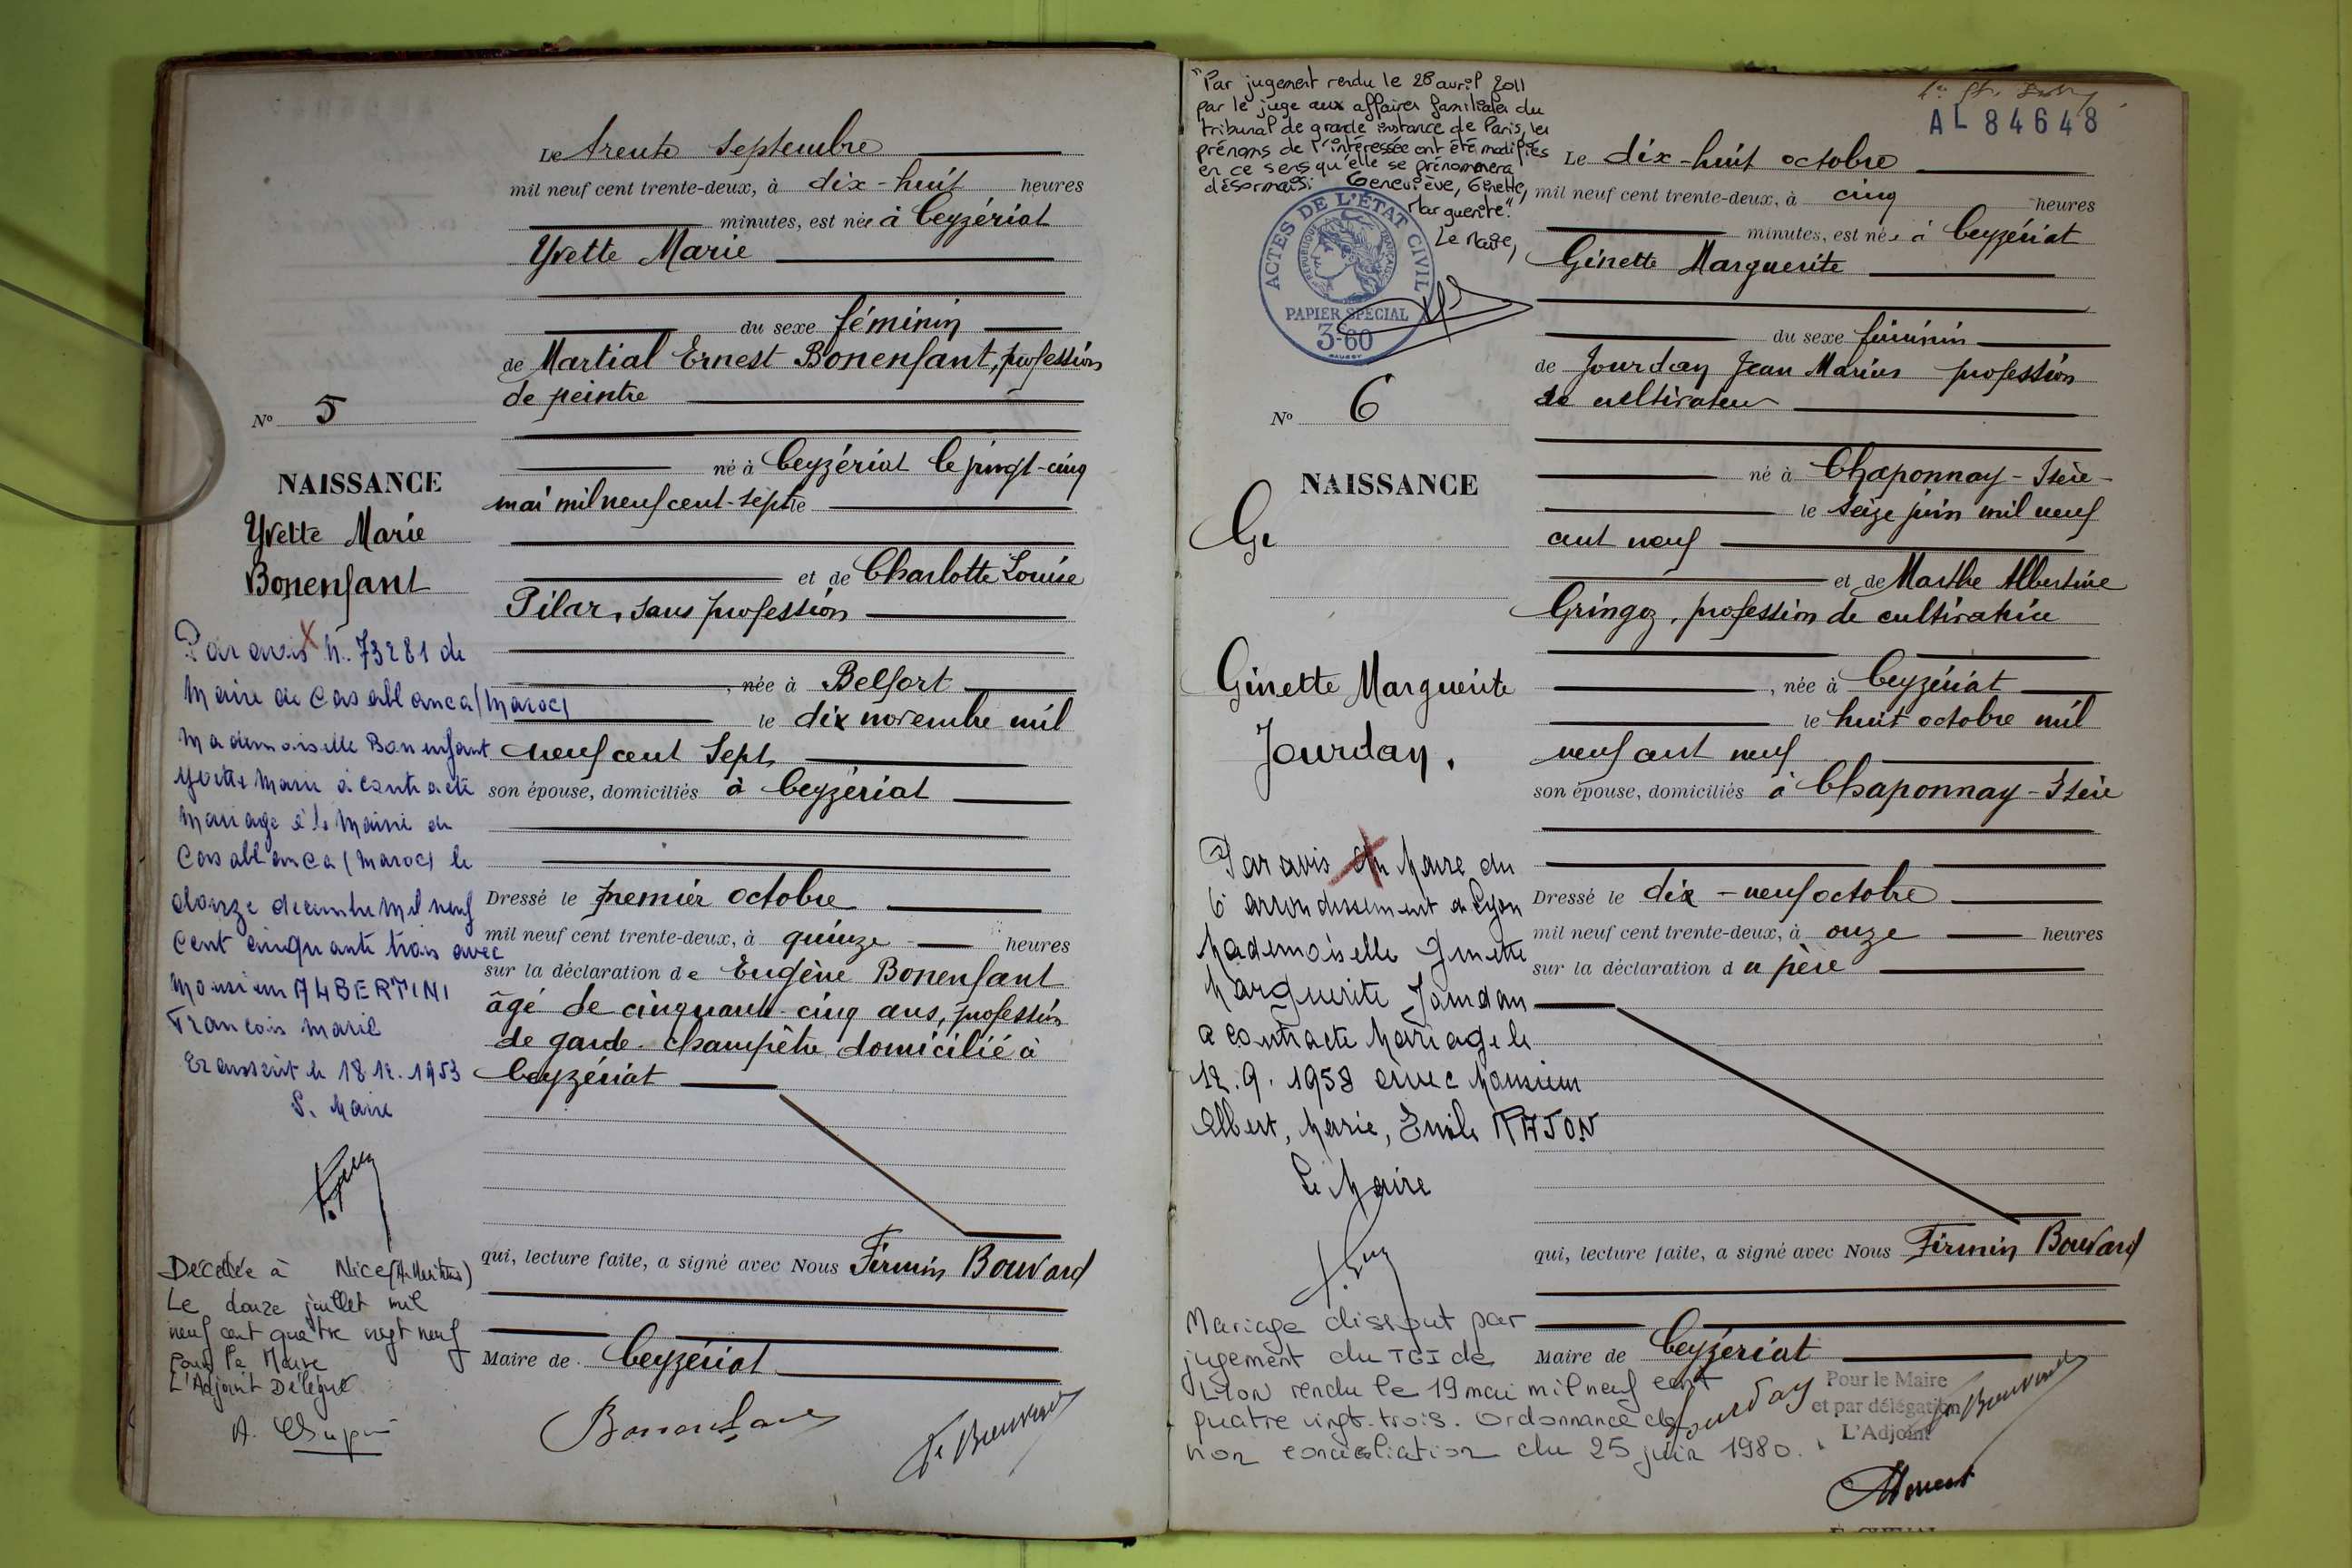 Le trente septembre
mil neuf cent trente-deux, à dix-huit heures
minutes, est née à Ceyzériat
Yvette Marie
du sexe féminin
de Martial Ernest Bonenfant, profession
de peintre
né à Ceyzériat le vingt-cinq
mai mil neuf cent-sept
et de Charlotte Louise
Pilar, sans profession
, née à Belfort
le dix novembre mil
neuf cent sept
son épouse, domiciliés à Ceyzériat
Dressé le premier octobre
mil neuf cent trente-deux, à quinze heures
sur la déclaration de Eugène Bonenfant
âgé de cinquante-cinq ans, profession
de garde-champêtre domicilié à
Ceyzériat
qui, lecture faite, a signé avec Nous Firmin Bouvard
Maire de Ceyzériat
Bonenfant
F. Bouvard
N° 5
NAISSANCE
Yvette Marie
Bonenfant
Par avis N. 73281 de
Maire de Casablanca (Maroc)
Mademoiselle Bonenfant
Yvette Marie a contracté
mariage à la Mairie de
Casablanca (Maroc) le
douze décembre mil neuf
cent cinquante trois avec
Monsieur ALBERTINI
François Marie
Transcrit le 18.12.1953
Le Maire
Décédée à Nice (A. Maritimes)
Le douze juillet mil
neuf cent quatre vingt neuf
Pour le Maire
L'Adjoint Délégué
"Par jugement rendu le 28 avril 2011
par le juge aux affaires familiales du
tribunal de grande instance de Paris, les
prénoms de l'intéressée ont été modifiés
en ce sens qu'elle se prénommera
désormais: Geneviève, Ginette,
Marguerite."
Le Maire,
ACTES DE L'ÉTAT CIVIL
RÉPUBLIQUE FRANÇAISE
PAPIER SPÉCIAL
3-60
AL 84648
N° 6
NAISSANCE
Ge
Ginette Marguerite
Jourdan.
Par avis du Maire du
6e arrondissement de Lyon
Mademoiselle Ginette
Marguerite Jourdan
a contracté Mariage le
12.9.1958 avec Monsieur
Albert, Marie, Emile RAJON
Le Maire
Mariage dissout par
jugement du TGI de
Lyon rendu le 19 mai mil neuf cent
quatre vingt-trois. Ordonnance de
non conciliation du 25 juin 1980.
Le dix-huit octobre
mil neuf cent trente-deux, à cinq heures
minutes, est née à Ceyzériat
Ginette Marguerite
du sexe féminin
de Jourdan Jean Marius profession
de cultivateur
né à Chaponnay-Isère-
le seize juin mil neuf
cent neuf
et de Marthe Albertine
Gringoz, profession de cultivatrice
, née à Ceyzériat
le huit octobre mil
neuf cent neuf
son épouse, domiciliés à Chaponnay-Isère
Dressé le dix-neuf octobre
mil neuf cent trente-deux, à onze heures
sur la déclaration du père
qui, lecture faite, a signé avec Nous Firmin Bouvard
Maire de Ceyzériat
Jourdan
F. Bouvard
Pour le Maire
et par délégation
L'Adjoint